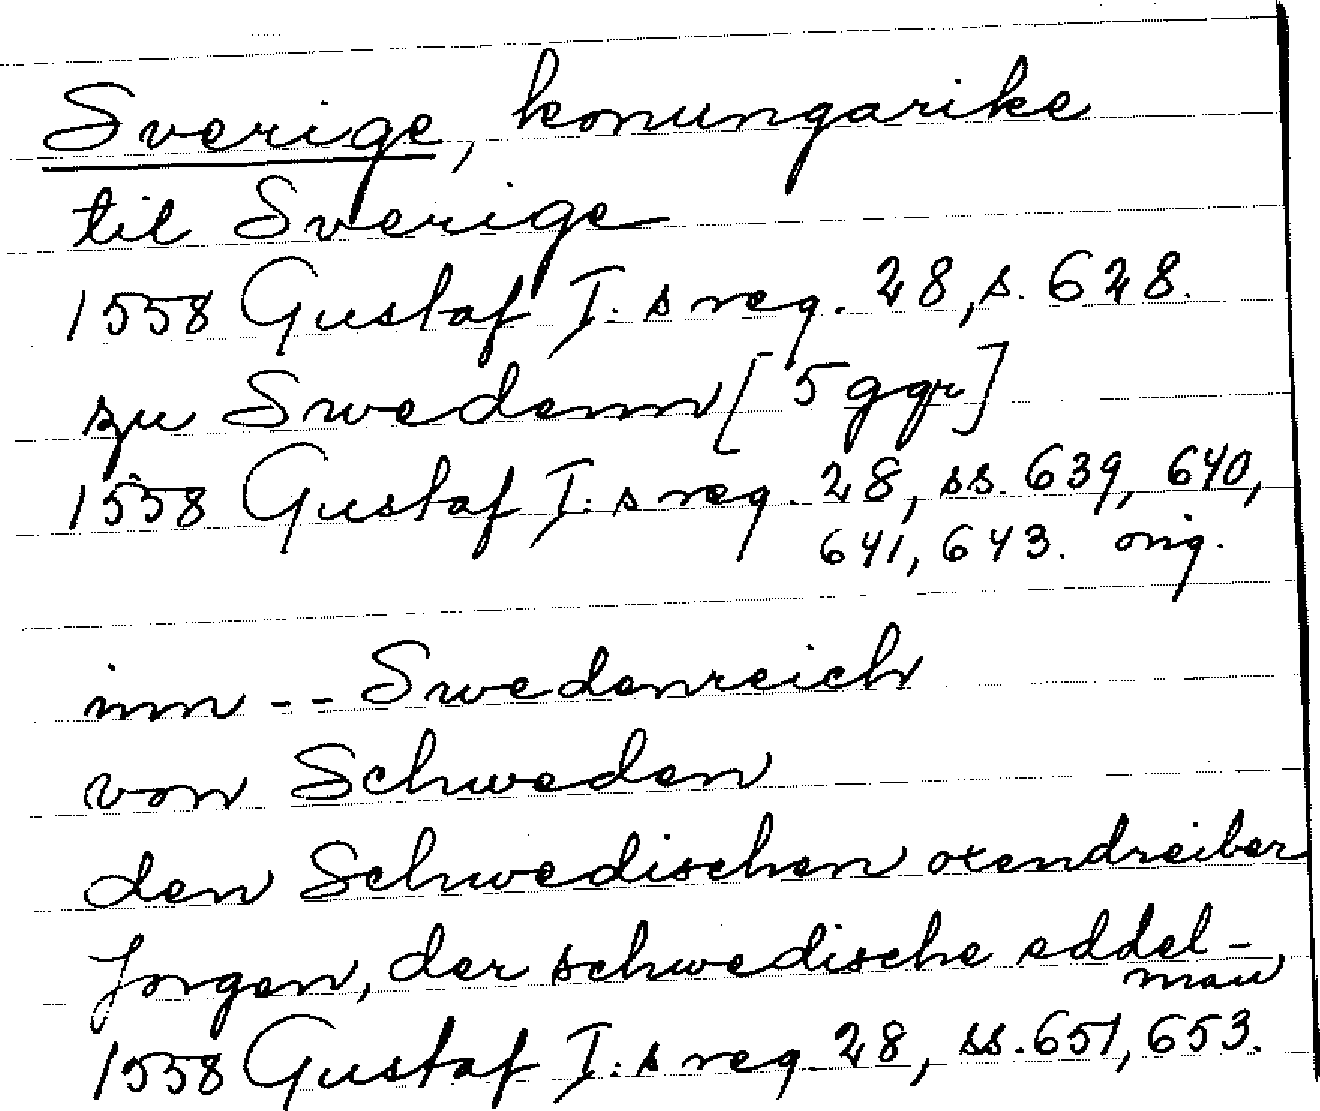 Sverige, konungarike
til Sverige
1558 Gustaf I:s reg. 28, s. 628.
zu Swedenn [5 ggr]
1558 Gustaf I:s reg. 28, ss. 639, 640,
641, 643. orig.
inn -- Swedenreich
von Schweden
den Schwedischen oxendreiber
Jorgen, der schwedische eddel-
man
1558 Gustaf I:s reg. 28, ss. 651, 653.